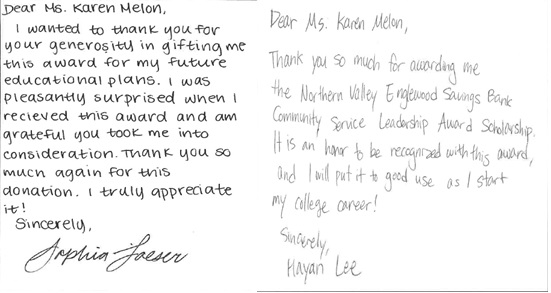 Dear Ms. Karen Melon,
I wanted to thank you for
your generosity in gifting me
this award for my future
educational plans. I was
pleasantly surprised when I
recieved this award and am
grateful you took me into
consideration. Thank you so
much again for this
donation. I truly appreciate
it!
Sincerely,
Sophia Loeser
Dear Ms. Karen Melon,
Thank you so much for awarding me
the Northern Valley Englewood Savings Bank
Community Service Leadership Award Scholarship.
It is an honor to be recognized with this award,
and I will put it to good use as I start
my college career!
Sincerely,
Hayan Lee